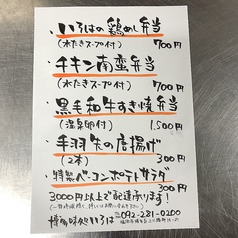 ・いろはの鶏めし弁当
(水たきスープ付) 700円
・チキン南蛮弁当
(水たきスープ付) 700円
・黒毛和牛すき焼弁当
(温泉卵付) 1,500円
・手羽先の唐揚げ
(2本) 300円
・特製ベーコンポテトサラダ
300円
3000円以上で配達承ります!
博多味処いろは ☎092-281-0200